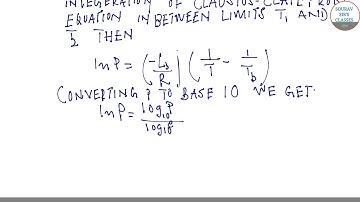 INTEGERATION OF CLAUSIUS-CLAIE
EQUATION IN BETWEEN LIMITS T₁ AND
T₂ THEN
ln P = (-L/R) (1/T - 1/Tb)
CONVERTING TO BASE 10 WE GET.
ln P = log₁₀P
SOURAV
SIR'S
CLASSES